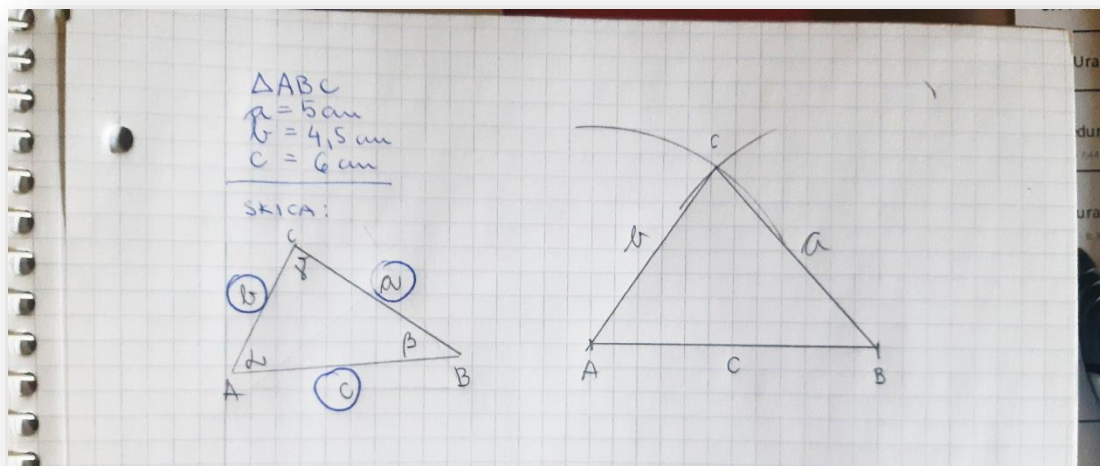 △ABC
a = 5 cm
b = 4,5 cm
c = 6 cm
SKICA:
C
γ
b
a
α
β
A
c
B
C
b
a
A
C
B
Ura